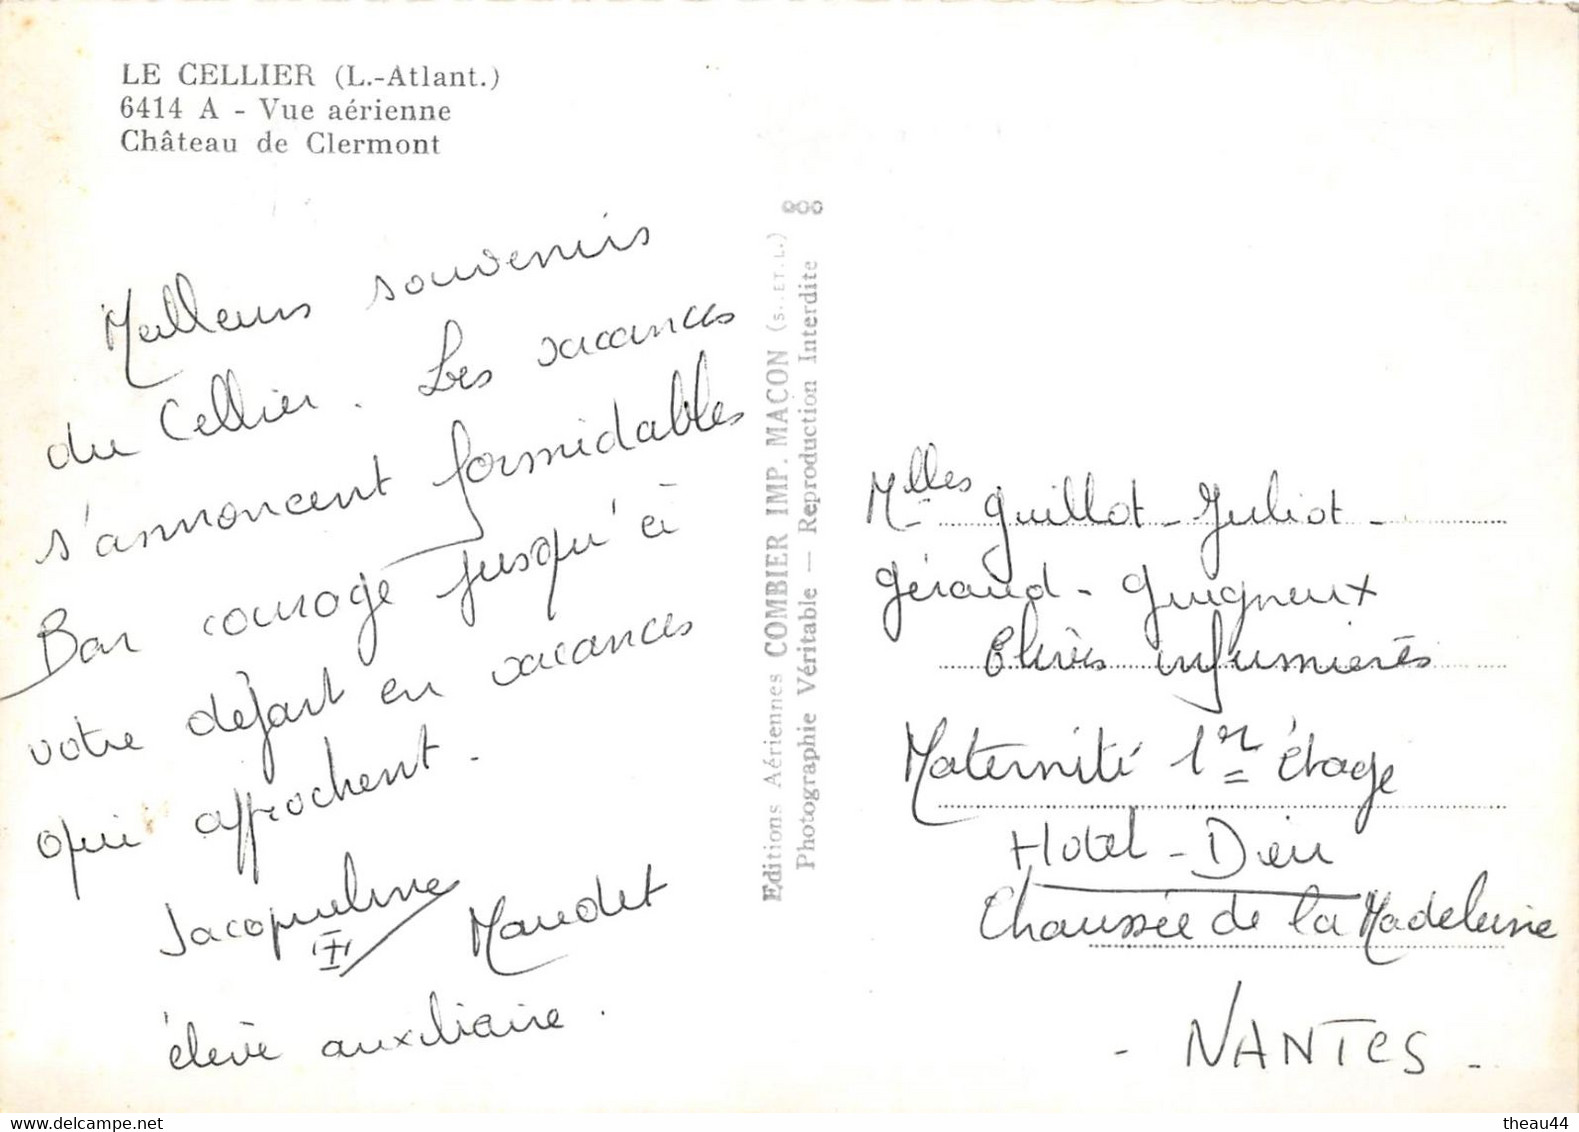 LE CELLIER (L.-Atlant.)
6414 A - Vue aérienne
Château de Clermont
Meilleurs souvenirs
du Cellier. Les vacances
s'annoncent formidables
Bon courage jusqu'à
votre départ en vacances
qui approchent.
Jacqueline Maudet
élève auxiliaire.
Editions Aériennes COMBIER IMP. MACON (S.ET.L.)
Photographie Véritable — Reproduction Interdite
Mlles Guillot - Juliot -
Géraud - Guigneux
Elèves infirmières
Maternité 1er étage
Hotel-Dieu
Chaussée de la Madeleine
- NANTES -
theau44